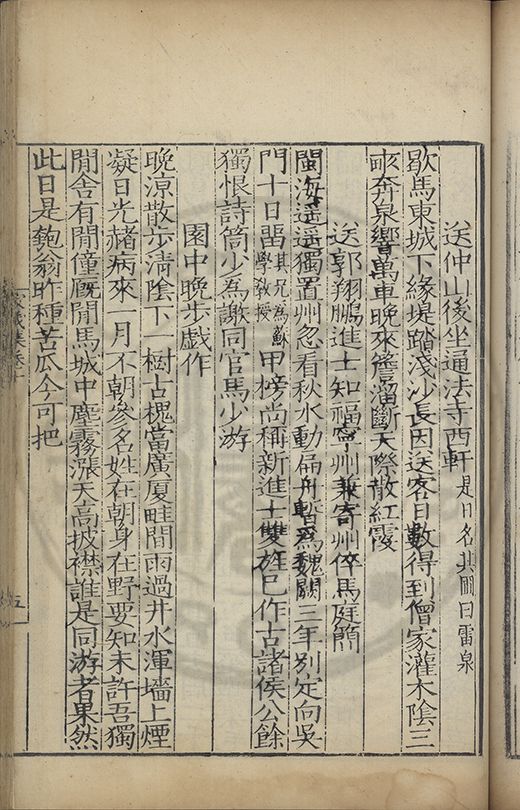 送仲山後坐通法寺西軒 是日名其曰雷泉
歇馬東城下緣堤踏淺沙長因送客日數得到僧家灌木陰三
畝奔泉響萬車晚來簷溜斷天際散紅霞
送郭翔鵬進士知福寧州兼寄州倅馬庭簡
閩海遥遥獨置州忽看秋水動扁舟暫爲魏闕三年別定向吳
門十日畱其兄為蘇學教授甲榜尚稱新進士雙旌已作古諸侯公餘
獨恨詩筒少為謝同官馬少游
園中晚步戲作
晚凉散步清陰下一樹古槐當廣厦畦間雨過井水渾墻上煙
凝日光赭病來一月不朝參名姓在朝身在野要知未許吾獨
閒舍有閒僮廐閒馬城中塵霧漲天高披襟誰是同游者果然
此日是匏翁昨種苦瓜今可把